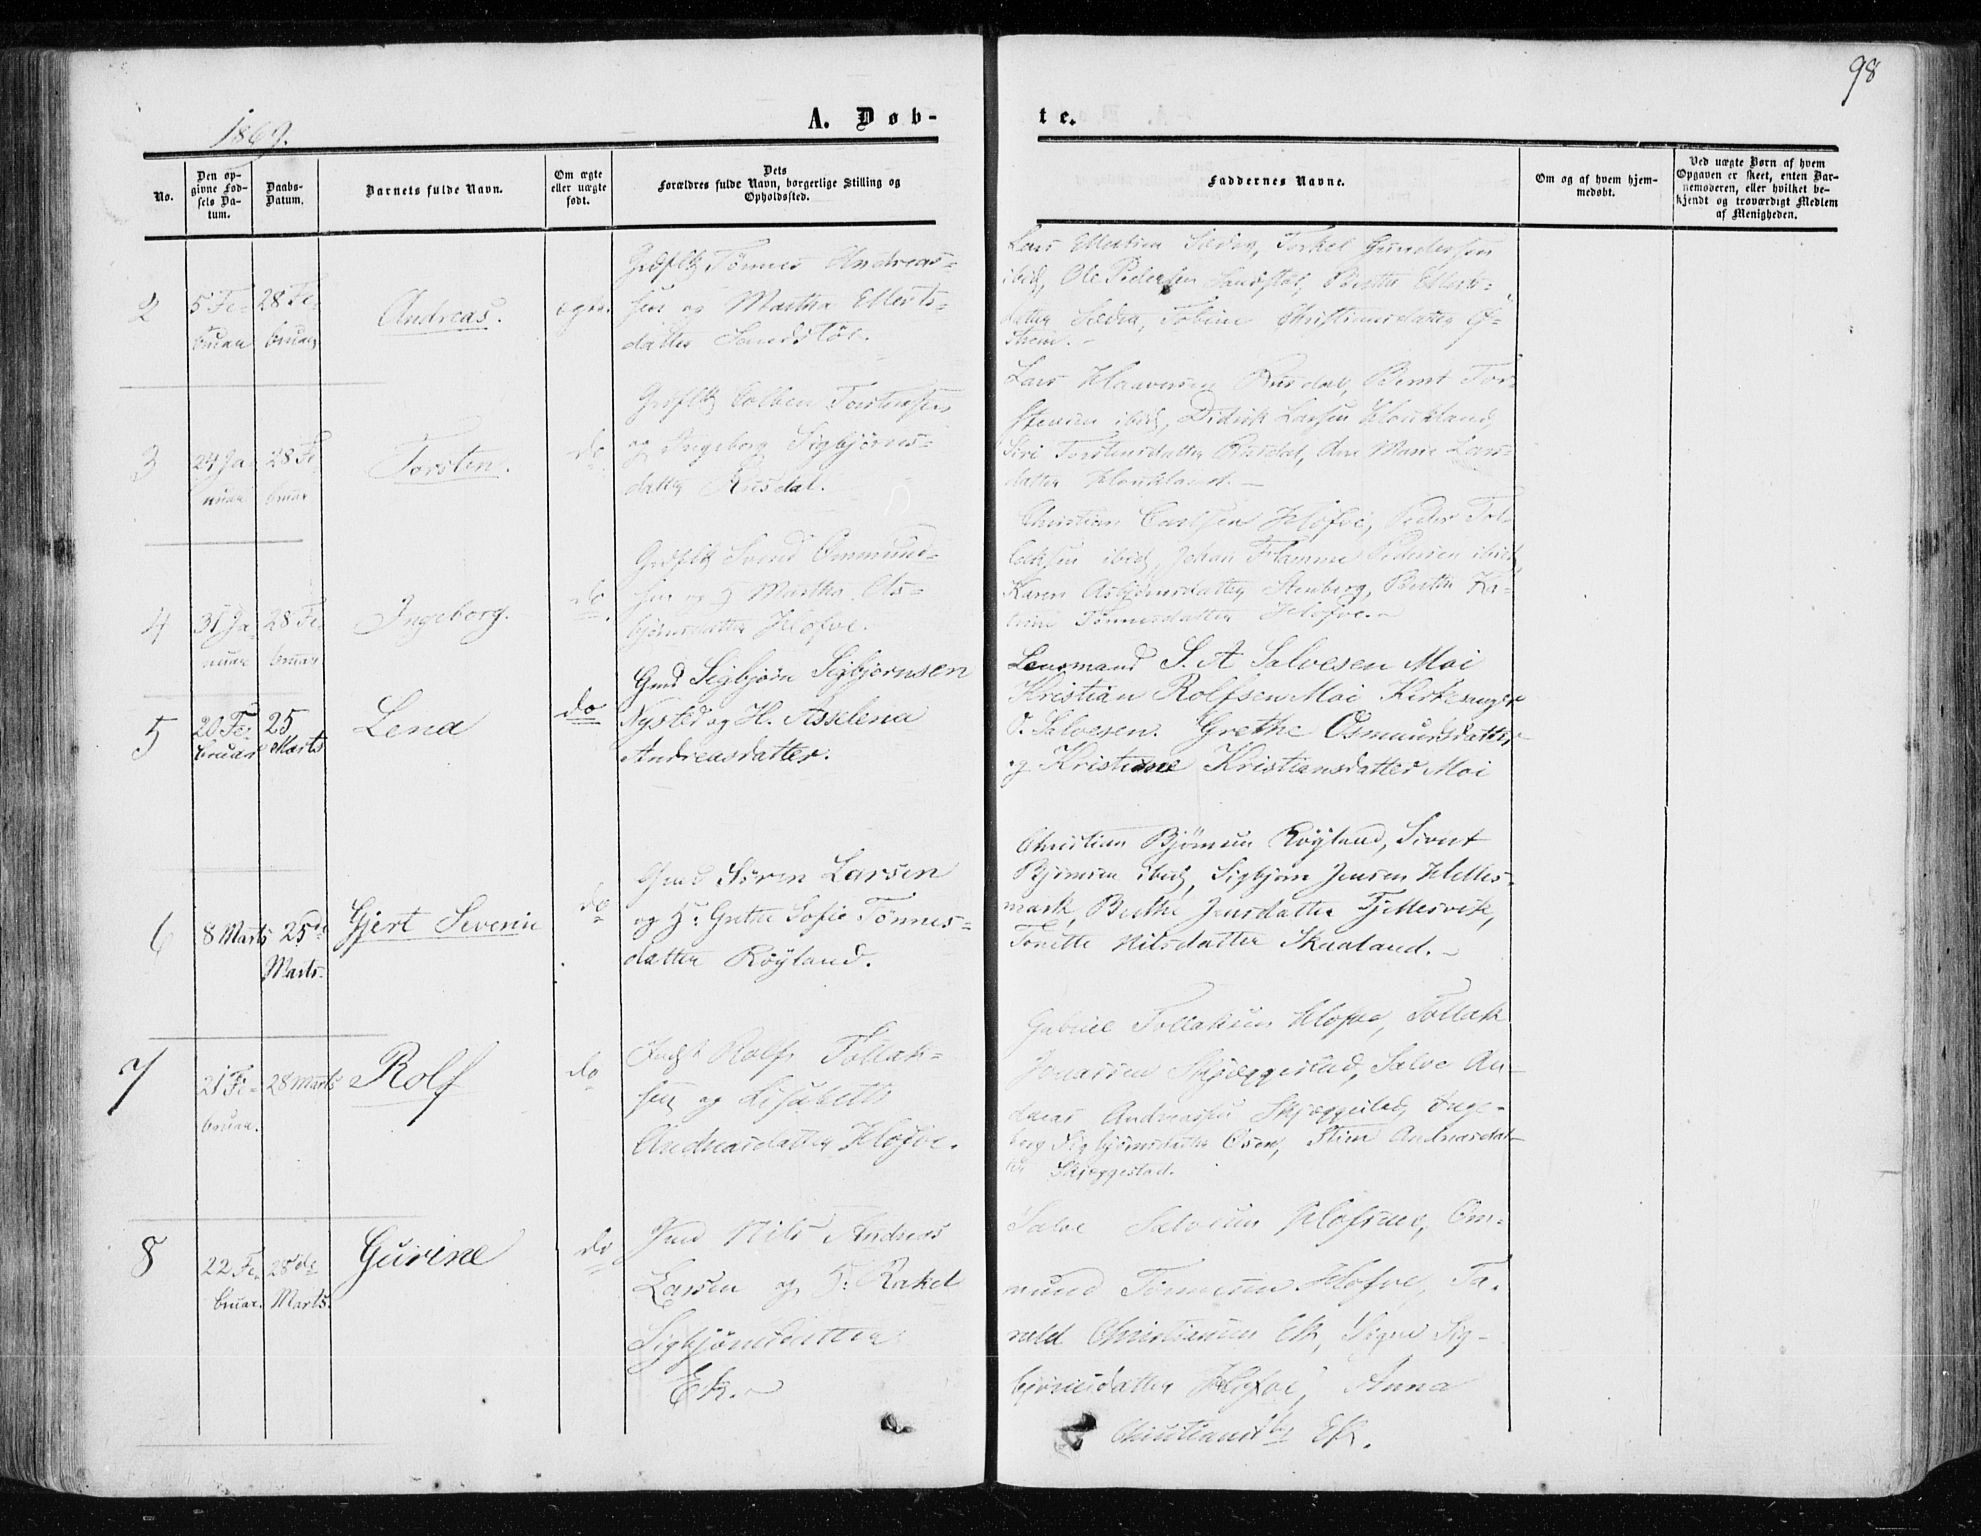 98
1869.
A. Døb-
te.
No.
Den op-
givne Fød-
sels Da-
tum.
Daabs-
Datum.
Barnets fulde Navn.
Om ægte
eller uægte
født.
Dets
Forældres fulde Navn, borgerlige Stilling og
Opholdssted.
Faddernes Navne.
Om og af hvem hjem-
medøbt.
Ved uægte Børn af hvem
Opgaven er skeet, enten Bar-
nemoderen, eller hvilket be-
kjendt og troværdigt Medlem
af Menigheden.
2
5 Fe-
bruar
28 Fe-
bruar
Andreas.
Tønnes Andreas-
sen og Martha Ellerts-
datter Sandstøl.
Torkel Gundersen
ibid, Ole Pedersen Sandstøl, Berthe Ellerts-
datter Tobine Christiansdatter
3
24 Ja-
nuar
28 Fe-
bruar
Torsten.
do
Torstensen
og Ingeborg Sigbjørns-
datter Rusdal.
Lars Haaversen Rusdal, Bernt Tor-
stensen ibid, Didrik Larsen Houkland,
Siri Torstensdatter Rusdal, Ane Marie Lars-
datter Houkland.
4
31 Ja-
nuar
28 Fe-
bruar
Ingeborg.
do
Svend Ommund-
sen og Martha As-
bjørnsdatter Hofve.
Christian Carlsen Hofve, Peder Tol-
laksen ibid, Johan Flamme Pedersen ibid,
Karen Asbjørnsdatter Stenberg, Berthe Ka-
trine Tønnesdatter Hofve.
5
20 Fe-
bruar
25
Marts
Lena
do
Gmd Sigbjørn Sigbjørnsen
Nysted og H. Asselena
Andreasdatter.
Lensmand S. A Salvesen Moi
Kristian Rolfsen Moi Kirkesanger
O. Salvesen. Grethe Osmundsdatter
og Kristine Kristiansdatter Moi
6
8 Marts
25de
Marts.
Gjert Severin
do
Gmd Søren Larsen
og H: Grethe Sofie Tønnes-
datter Røyland.
Christian Bjørnsen Røyland, Sivert
Bjørnsen ibid, Sigbjørn Jensen Helles-
mark, Berthe Jensdatter Fjellesvik,
Tonette Nilsdatter Skaaland.
7
21 Fe-
bruar.
28 Marts
Rolf
do
Rolf Tollak-
sen og Lisabeth
Andreasdatter Hofve.
Gabriel Tollaksen Hofve, Tollak
Jonassen Skjæggestad, Salve An-
dreas Andreassen Skjæggestad, Inge-
borg Sigbjørnsdatter Osen, Stine Andreasdat-
ter Skjæggestad.
8
22 Fe-
bruar.
28de
Marts.
Gurine
do
Gmd Nils Andreas
Larsen og H: Rakel
Sigbjørnsdatter
Eik.
Salve Salvesen Om-
mund Tønnesen Hofve, Ta-
rald Christiansen Eik, Signe Sig-
bjørnsdatter Hofve, Anna
Christiansdtr Eik.